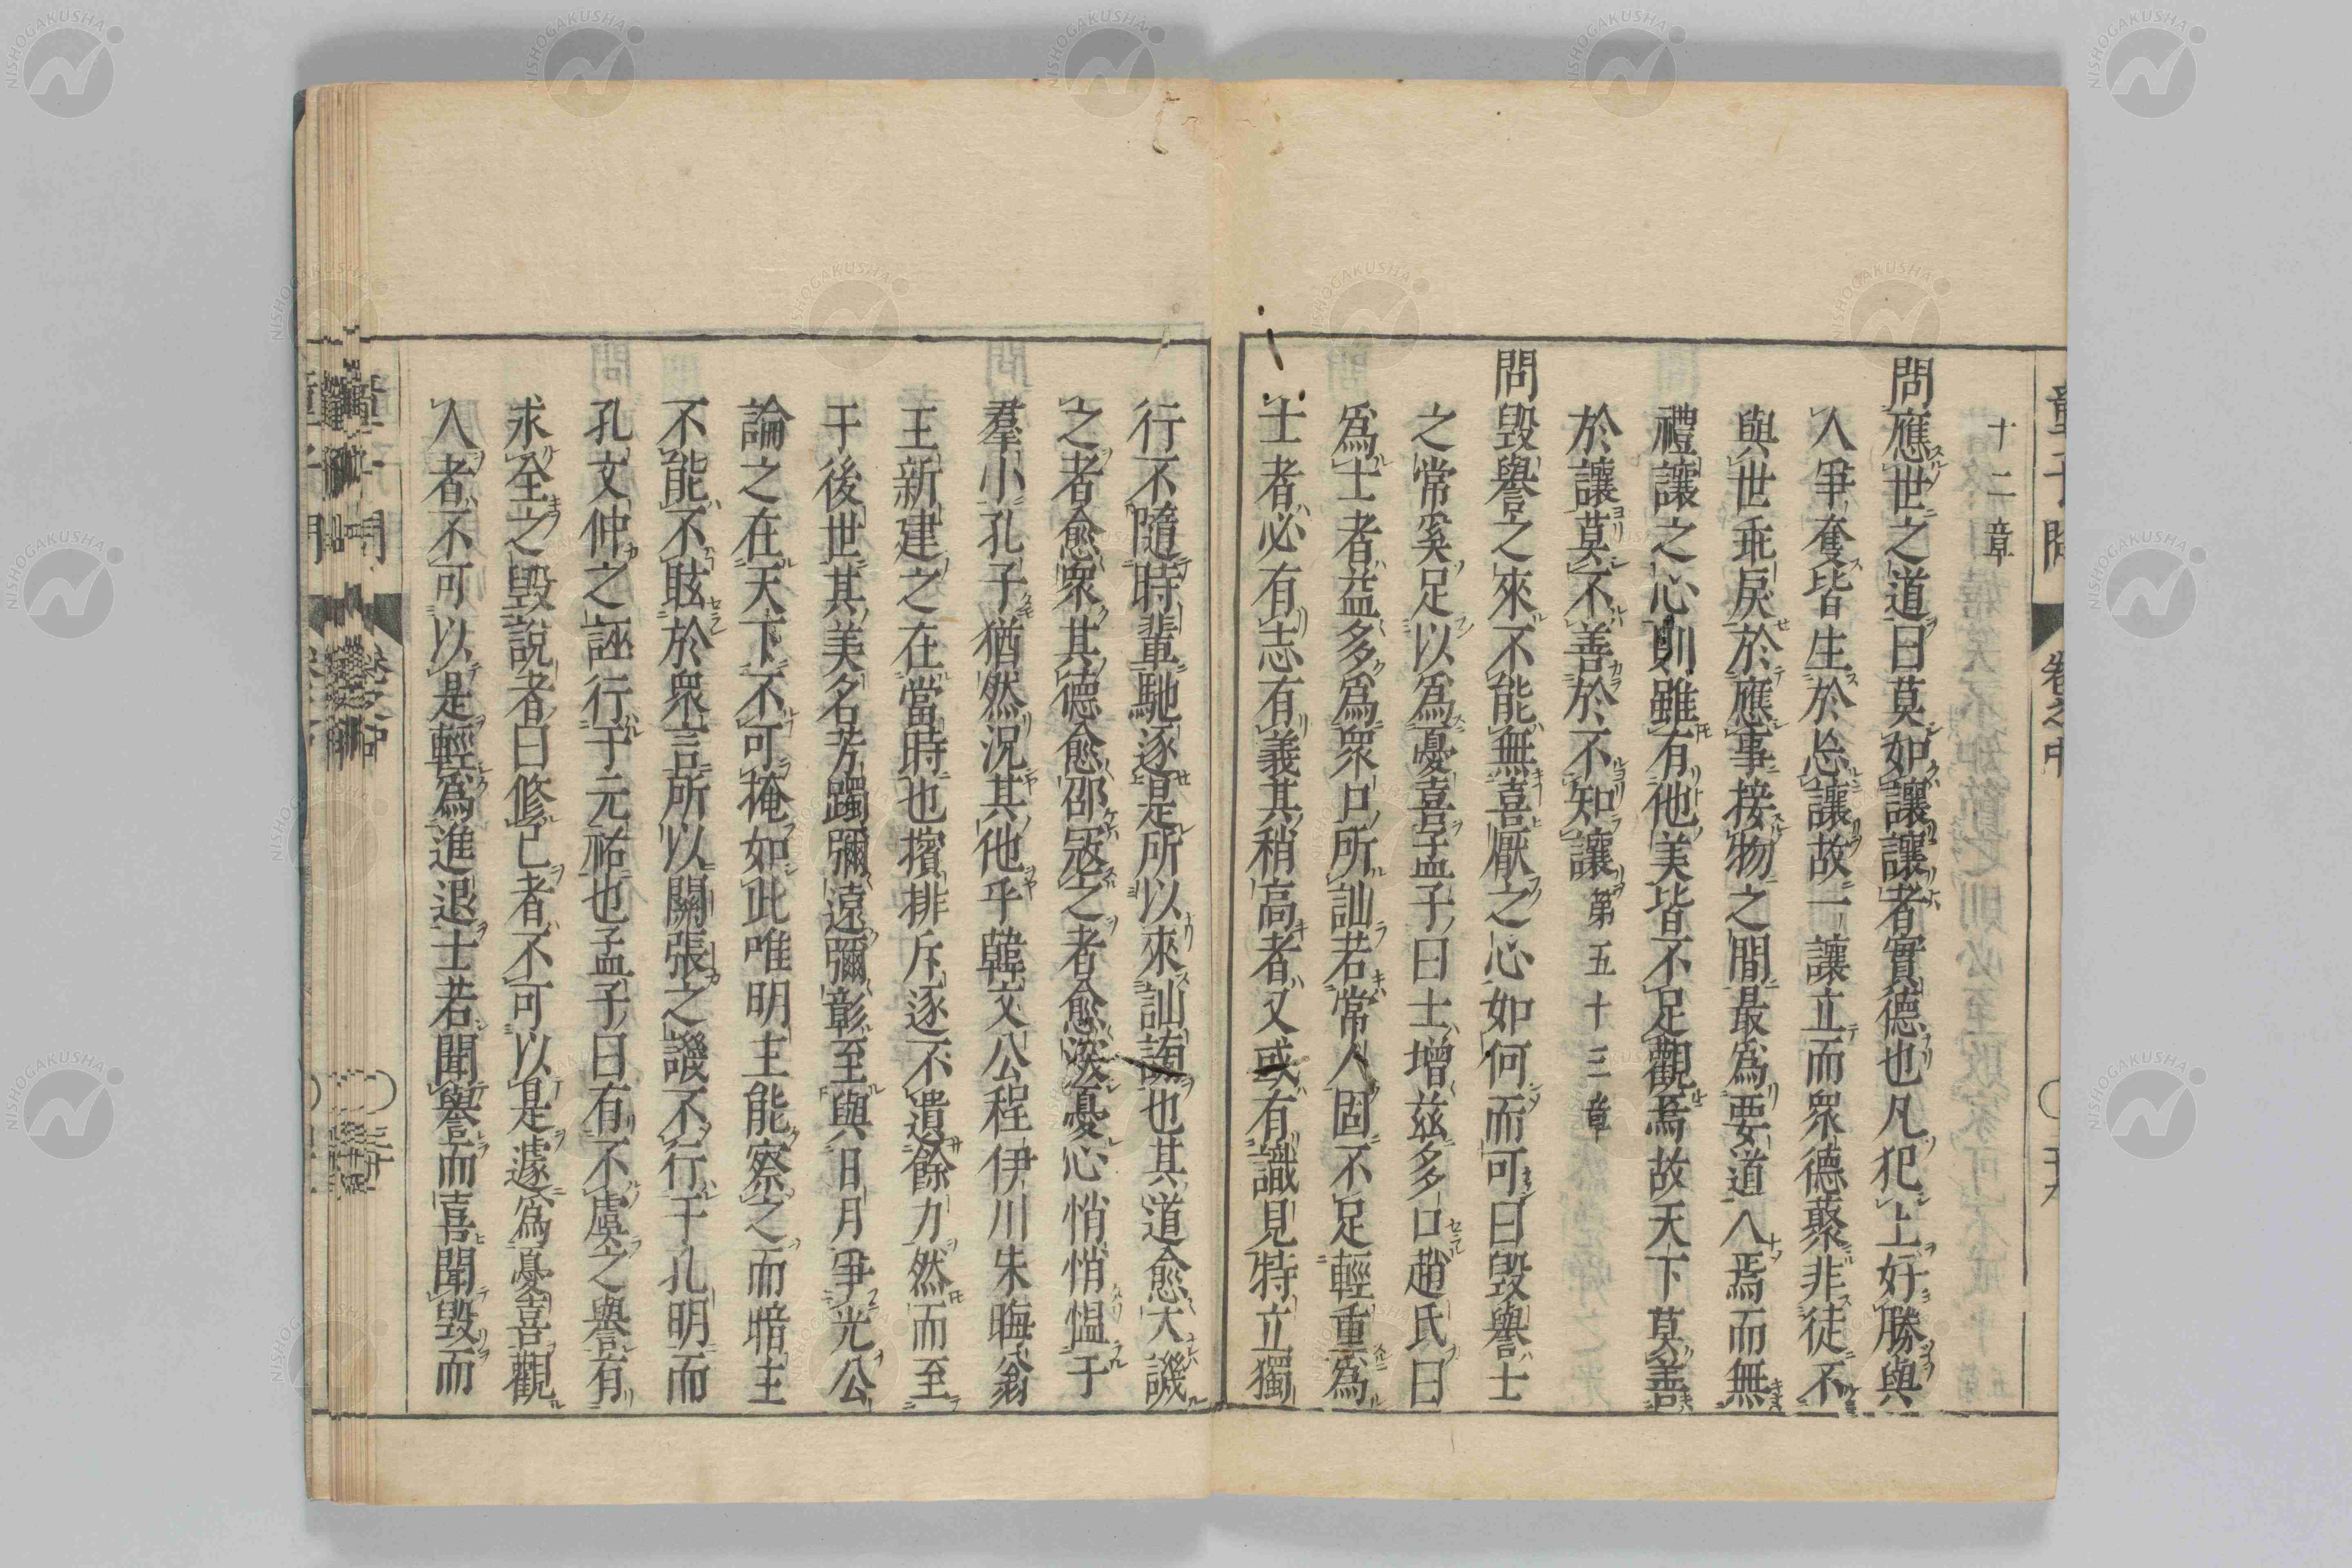 十二章
問應世之道曰莫如讓讓者實德也凡犯上好勝與
人爭奪皆生於忘讓故一讓立而衆德聚非徒不
與世乖戾於應事接物之間最爲要道人焉而無
禮讓之心則雖有他美皆不足觀焉故天下莫善
於讓莫不善於不知讓 第五十三章
問毀譽之來不能無喜厭之心如何而可曰毀譽士
之常奚足以爲憂喜孟子曰士增茲多口趙氏曰
爲士者益多爲衆口所訕若常人固不足輕重爲
士者必有志有義其稍高者又或有識見特立獨
行不隨時輩馳逐是所以來訕誨也其道愈大譏
之者愈衆其德愈邵寇之者愈深憂心悄悄慍于
羣小孔子猶然況其他乎韓文公程伊川朱晦翁
王新建之在當時也擯排斥逐不遺餘力然而至
于後世其美名芳躅彌遠彌彰至與日月爭光公
論之在天下不可掩如此唯明主能察之而暗主
不能不眩於衆言所以關張之譏不行于孔明而
孔文仲之誣行于元祐也孟子曰有不虞之譽有
求全之毀說者曰修己者不可以是遽爲憂喜觀
人者不可以是輕爲進退士若聞譽而喜聞毀而